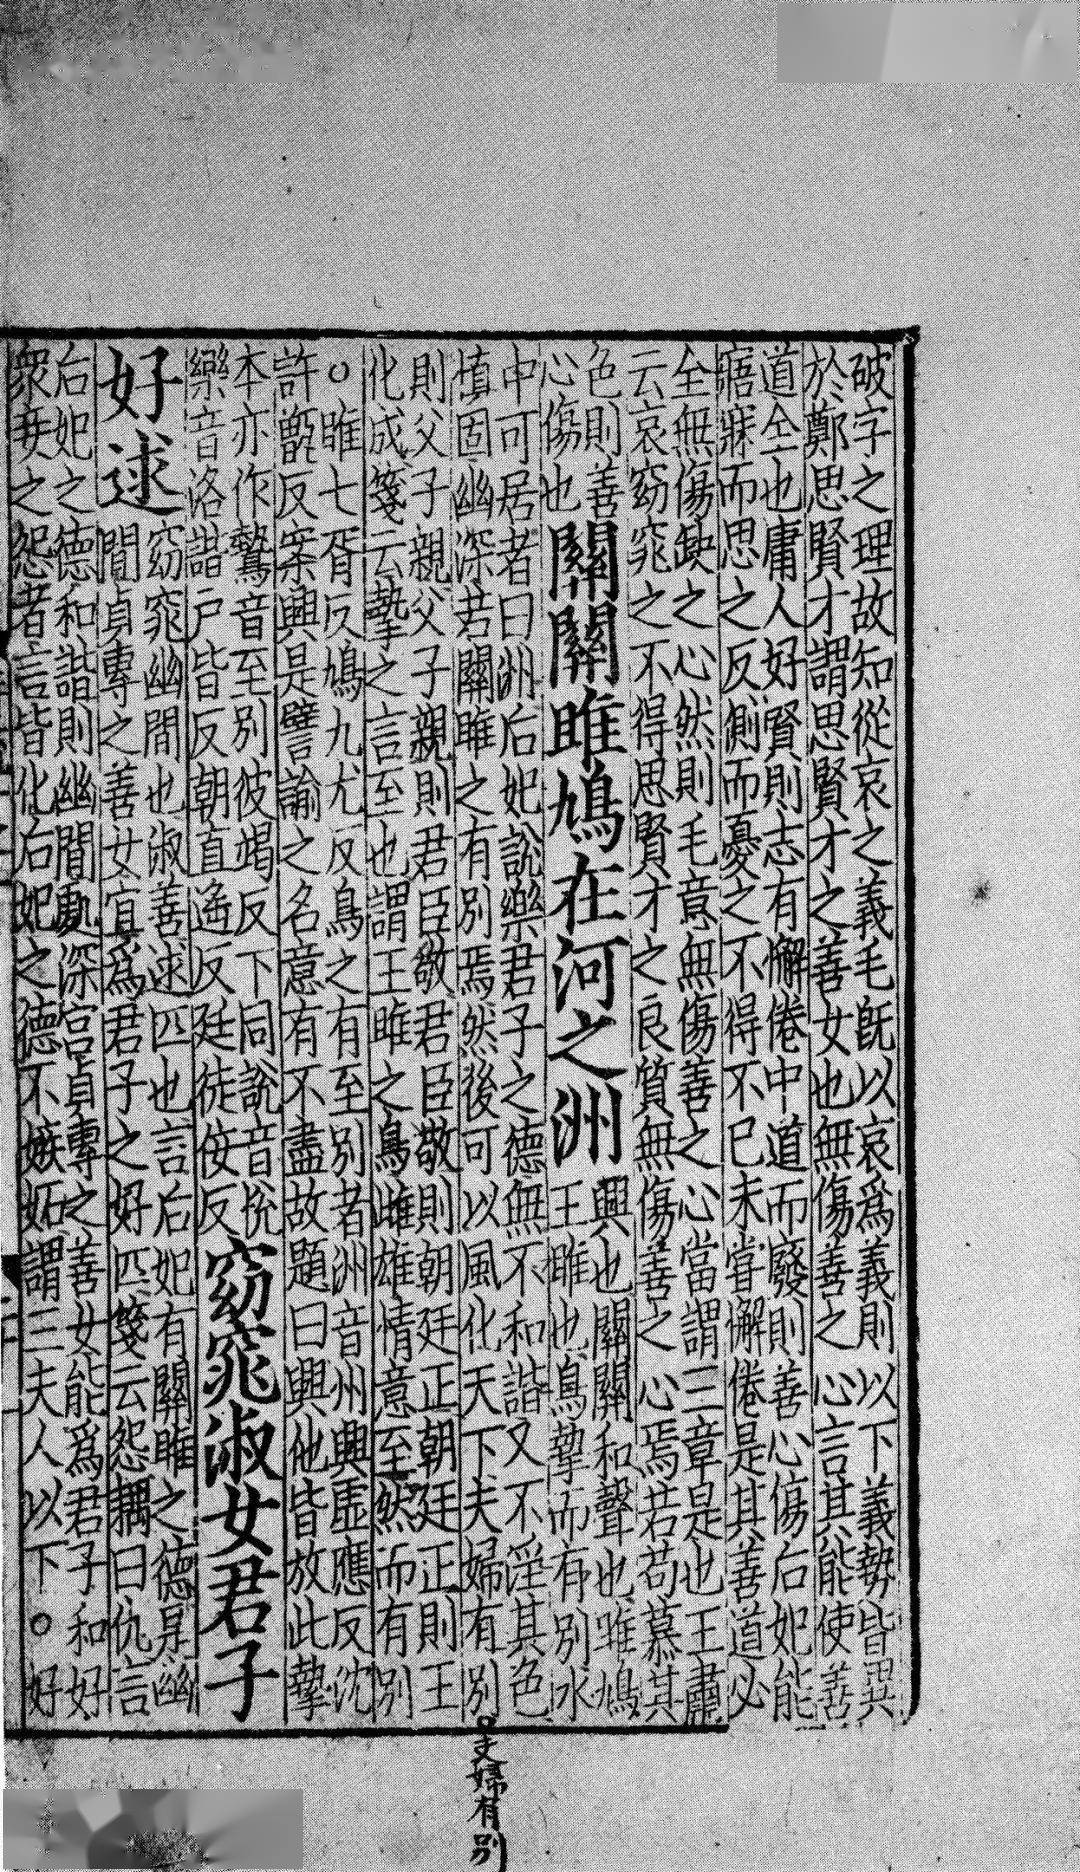 破字之理故知從哀之義毛旣以哀爲義則以下義勢皆異
於鄭思賢才謂思賢才之善女也無傷善之心言其能使善
道全也庸人好賢則志有懈倦中道而廢則善心傷后妃能
寤寐而思之反側而憂之不得不已未嘗懈倦是其善道必
全無傷缺之心然則毛意無傷善之心當謂三章是也王肅
云哀窈窕之不得思賢才之良質無傷善之心焉若苟慕其
色則善
心傷也
關關雎鳩在河之洲
興也關關和聲也雎鳩
王雎也鳥摯而有別水
中可居者曰洲后妃說樂君子之德無不和諧又不淫其色
慎固幽深若關雎之有別焉然後可以風化天下夫婦有別
則父子親父子親則君臣敬君臣敬則朝廷正朝廷正則王
化成箋云摯之言至也謂王雎之鳥雌雄情意至然而有別
○雎七胥反鳩九尤反鳥之有至別者洲音州興虛應反沈
許甑反案興是譬諭之名意有不盡故題曰興他皆放此摯
本亦作鷙音至別彼竭反下同說音悅
樂音洛諧戶皆反朝直遙反廷徒佞反
窈窕淑女君子
好逑
窈窕幽閒也淑善逑匹也言后妃有關雎之德是幽
閒貞專之善女宜爲君子之好匹箋云怨耦曰仇言
后妃之德和諧則幽閒處深宮貞專之善女能爲君子和好
衆妾之怨者言皆化后妃之德不嫉妬謂三夫人以下○好
夫婦有別